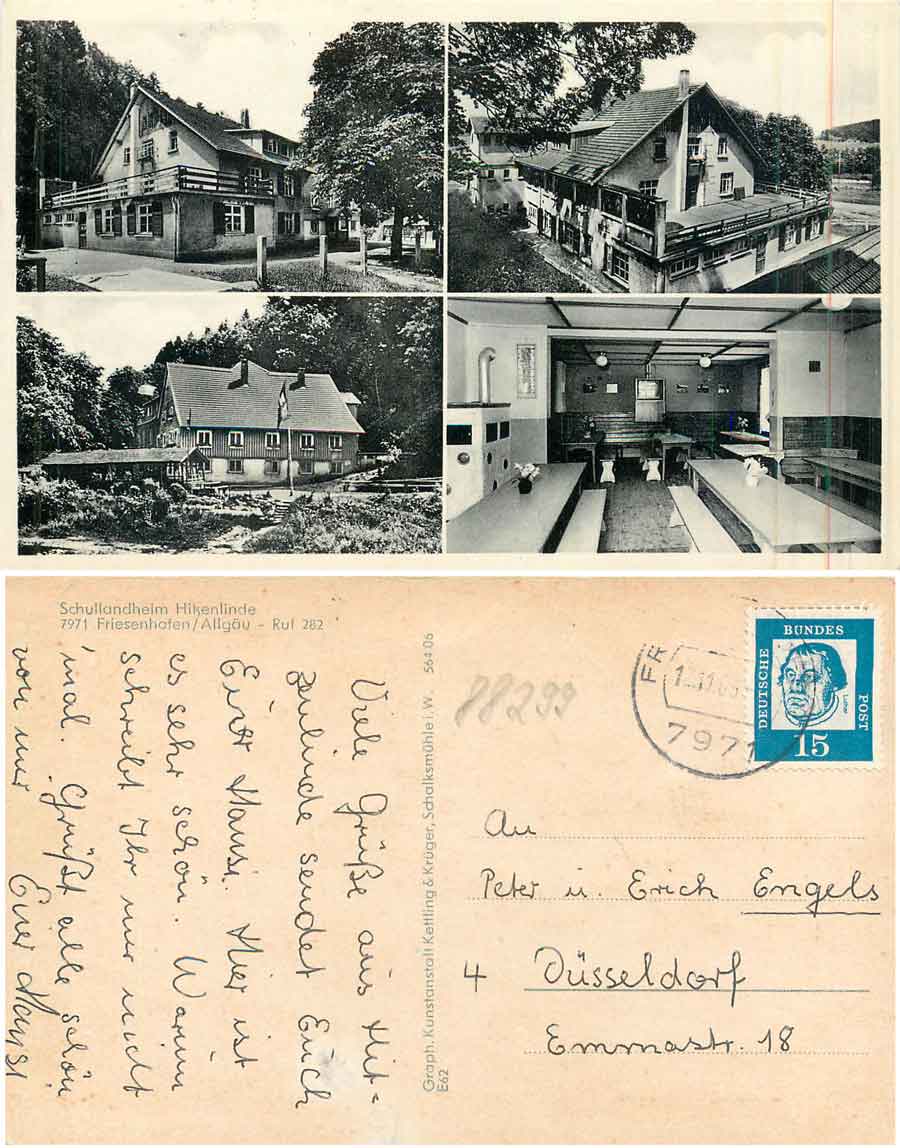 Schullandheim Hitzenlinde
7971 Friesenhofen/Allgäu - Ruf 282
Viele Grüße aus Hit=
zenlinde sendet Euch
Euer Hansi. Hier ist
es sehr schön. Warum
schreibt Ihr mir nicht
mal. Grüßt alle schön
von mir
Euer Hansi
Graph. Kunstanstalt Kettling & Krüger, Schalksmühle i. W. 564 06
E62
88299
7971
DEUTSCHE
BUNDES
POST
Luther
15
An
Peter u. Erich Engels
4 Düsseldorf
Emmastr. 18